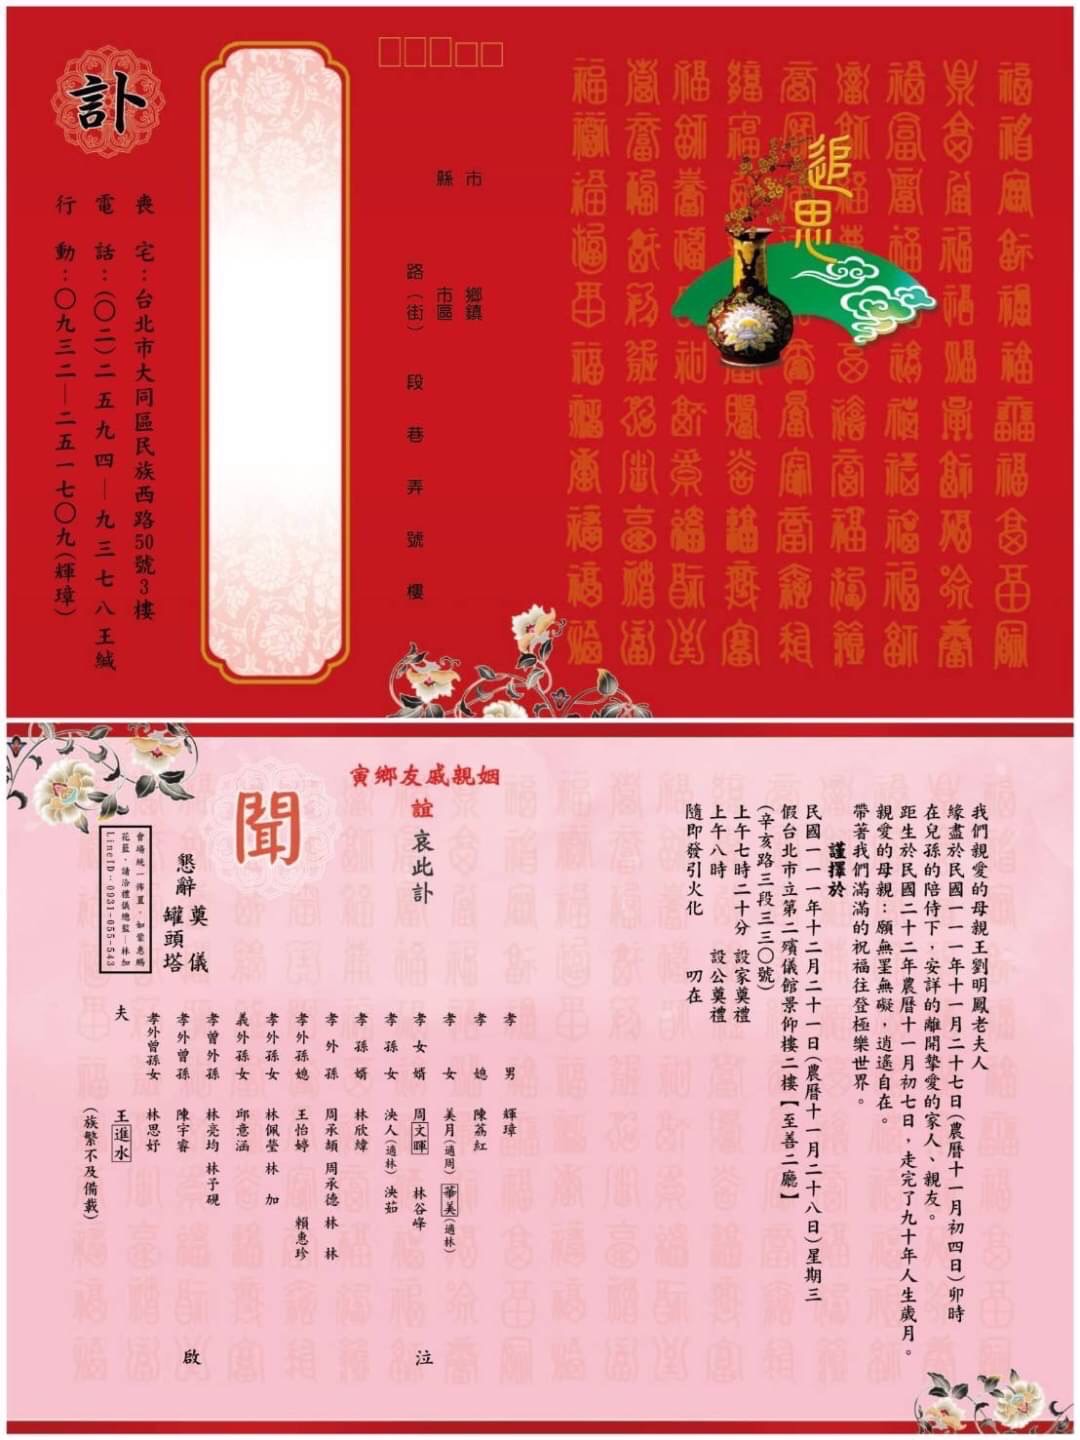 追思
市
縣
鄉鎮
市區
路（街） 段 巷 弄 號 樓
訃
喪 宅：台北市大同區民族西路50號3樓
電 話：（〇二）二五九四—九三七八王緘
行 動：〇九三二—二五一七〇九（輝璋）
我們親愛的母親王劉明鳳老夫人
緣盡於民國一一一年十一月二十七日（農曆十一月初四日）卯時
在兒孫的陪侍下，安詳的離開摯愛的家人、親友。
距生於民國二十二年農曆十一月初七日，走完了九十年人生歲月。
親愛的母親：願無罣無礙，逍遙自在。
帶著我們滿滿的祝福往登極樂世界。
謹擇於
民國一一一年十二月二十一日（農曆十一月二十八日）星期三
假台北市立第二殯儀館景仰樓二樓【至善二廳】
（辛亥路三段三三〇號）
上午七時二十分 設家奠禮
上午八時 設公奠禮
隨即發引火化 叨在
姻親戚友鄉寅
誼 哀此訃
聞
懇辭 奠儀
罐頭塔
會場統一佈置，如蒙惠賜
花籃，請洽禮儀總監—林加
LineID：0931-055-543
孝 男 輝璋
孝 媳 陳荔紅
孝 女 美月（適周） 華美（適林）
孝女婿 周文暉 林谷峰 泣
孝孫女 泱人（適林） 泱茹
孝孫婿 林欣緯
孝外孫 周承頡 周承德 林 林
孝外孫媳 王怡婷 賴惠珍
孝外孫女 林佩瑩 林 加
義外孫女 邱意涵
孝曾外孫 林亮均 林予硯
孝外曾孫 陳宇睿 啟
孝外曾孫女 林思妤
夫 王進水
（族繁不及備載）